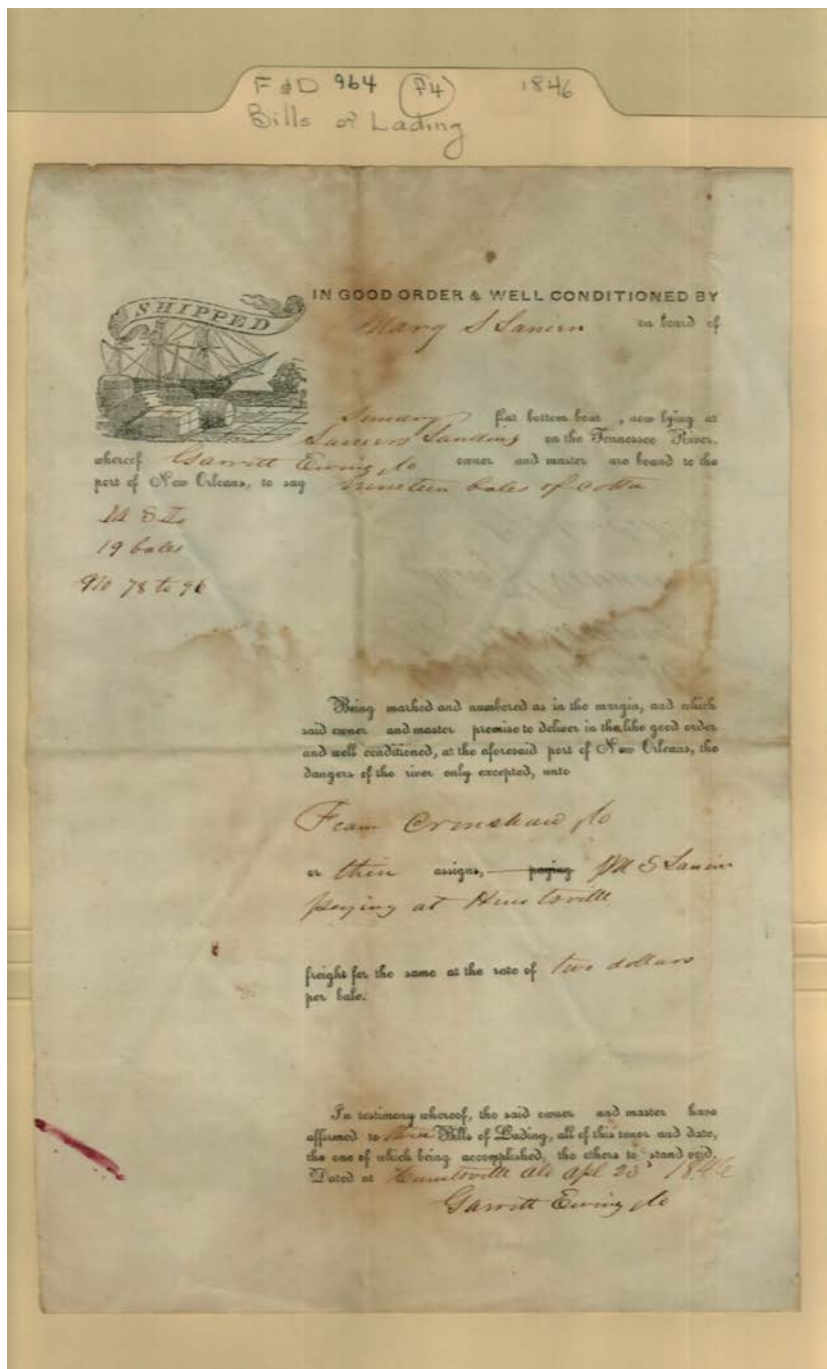 F & D 964 P4 1846
Bills of Lading
SHIPPED
IN GOOD ORDER & WELL CONDITIONED BY
Mary S Lanier on board of
flat bottom boat, now lying at
Laniers Landing on the Tennessee River,
whereof Garritt Ewing & Co owner and master are bound to the
port of New Orleans, to say nineteen bales of cotton
M S L
19 bales
No 78 to 96
Being marked and numbered as in the margin, and which
said owner and master promise to deliver in the like good order
and well conditioned, at the aforesaid port of New Orleans, the
dangers of the river only excepted, unto
Fearn Crenshaw & Co
or their assigns, paying M S Lanier
paying at Huntsville
freight for the same at the rate of two dollars
per bale.
In testimony whereof, the said owner and master have
affirmed to three Bills of Lading, all of this tenor and date,
the one of which being accomplished, the others to stand void.
Dated at Huntsville Ala Apl 23 1846
Garritt Ewing & Co